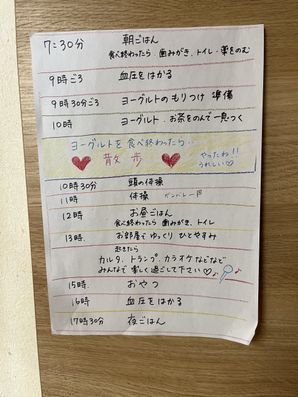 7:30分 朝ごはん
食べ終わったら 歯みがき、トイレ・薬をのむ
9時ごろ 血圧をはかる
9時30分ごろ ヨーグルトのもりつけ 準備
10時 ヨーグルト、お茶をのんで一息つく
ヨーグルトを食べ終わったら…
散歩 やったね!!
うれしい♡
10時30分 頭の体操
11時 体操
12時 お昼ごはん
食べ終わったら 歯みがき、トイレ
13時. お部屋でゆっくり ひとやすみ
起きたら
カルタ、トランプ、カラオケなどなど
みんなで楽しく過ごして下さい♡
15時. おやつ
16時 血圧をはかる
17時30分 夜ごはん